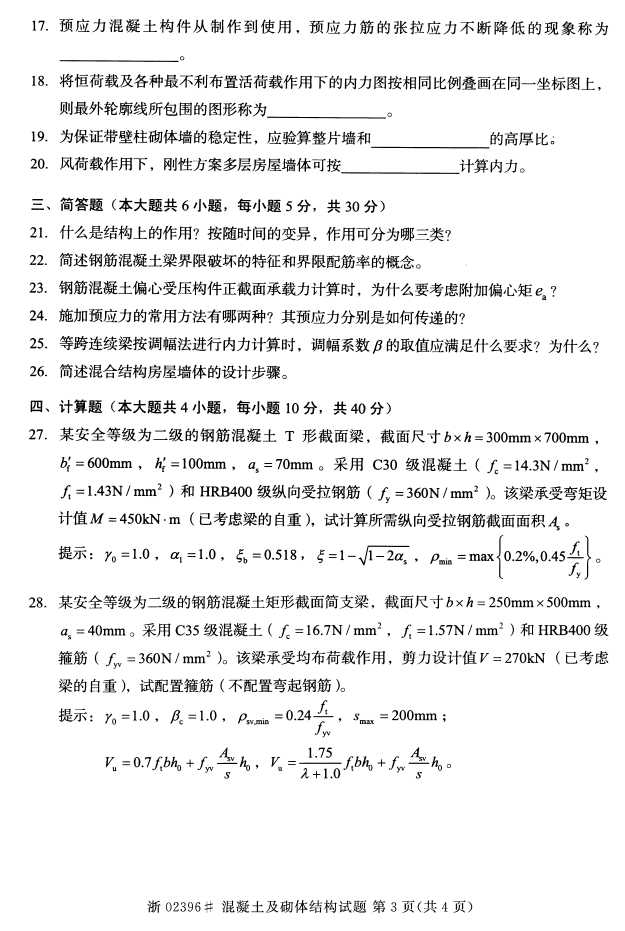 17. 预应力混凝土构件从制作到使用，预应力筋的张拉应力不断降低的现象称为
____________。
18. 将恒荷载及各种最不利布置活荷载作用下的内力图按相同比例叠画在同一坐标图上，
则最外轮廓线所包围的图形称为____________。
19. 为保证带壁柱砌体墙的稳定性，应验算整片墙和____________的高厚比。
20. 风荷载作用下，刚性方案多层房屋墙体可按____________计算内力。
三、简答题（本大题共 6 小题，每小题 5 分，共 30 分）
21. 什么是结构上的作用？按随时间的变异，作用可分为哪三类？
22. 简述钢筋混凝土梁界限破坏的特征和界限配筋率的概念。
23. 钢筋混凝土偏心受压构件正截面承载力计算时，为什么要考虑附加偏心矩 eₐ？
24. 施加预应力的常用方法有哪两种？其预应力分别是如何传递的？
25. 等跨连续梁按调幅法进行内力计算时，调幅系数 β 的取值应满足什么要求？为什么？
26. 简述混合结构房屋墙体的设计步骤。
四、计算题（本大题共 4 小题，每小题 10 分，共 40 分）
27. 某安全等级为二级的钢筋混凝土 T 形截面梁，截面尺寸 b×h=300mm×700mm，
b′f =600mm，h′f =100mm，as =70mm。采用 C30 级混凝土（fc =14.3N/mm²，
ft =1.43N/mm²）和 HRB400 级纵向受拉钢筋（fy =360N/mm²）。该梁承受弯矩设
计值 M=450kN·m（已考虑梁的自重），试计算所需纵向受拉钢筋截面面积 As。
提示：γ0 =1.0，α1 =1.0，ξb =0.518，ξ=1−√(1−2αs)，ρmin =max{0.2%,0.45 ft/fy}。
28. 某安全等级为二级的钢筋混凝土矩形截面简支梁，截面尺寸 b×h=250mm×500mm，
as =40mm。采用 C35 级混凝土（fc =16.7N/mm²，ft =1.57N/mm²）和 HRB400 级
箍筋（fyv =360N/mm²）。该梁承受均布荷载作用，剪力设计值 V=270kN（已考虑
梁的自重），试配置箍筋（不配置弯起钢筋）。
提示：γ0 =1.0，βc =1.0，ρsv,min =0.24 ft/fyv，smax =200mm；
Vu =0.7ftbh0 + fyv Asv/s h0，Vu = 1.75/(λ+1.0) ftbh0 + fyv Asv/s h0。
浙 02396# 混凝土及砌体结构试题 第 3 页(共 4 页)